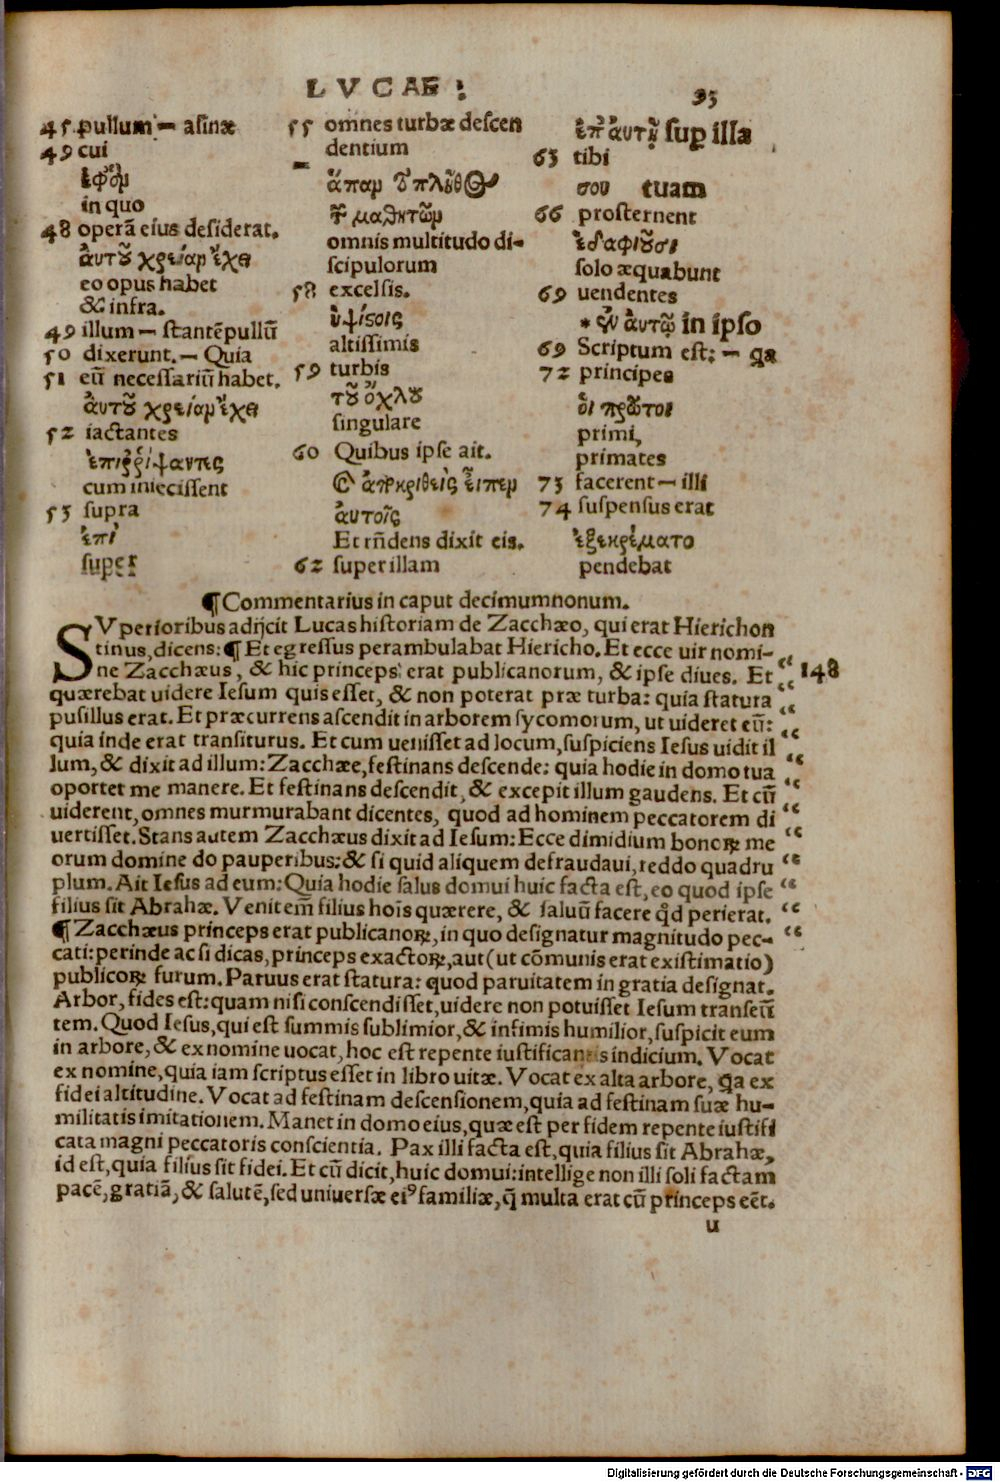 LVCAE:
95
45 pullum — asinæ
49 cui
ἐφ᾽ ὃν
in quo
48 operā eius desiderat.
ἀυτοῦ χρείαν ἔχει
eo opus habet
& infra.
49 illum — stantē pullū
50 dixerunt. — Quia
51 eū necessariū habet.
ἀυτοῦ χρείαν ἔχει
52 iactantes
ἐπιῤῥίψαντες
cum iniecissent
53 supra
ἐπὶ
super
55 omnes turbæ descen
dentium
ἅπαν τὸ πλῆθος
τῶν μαθητῶν
omnis multitudo di-
scipulorum
58 excelsis.
ὑψίστοις
altissimis
59 turbis
τοῦ ὄχλου
singulare
60 Quibus ipse ait.
καὶ ἀποκριθεὶς εἶπεν
ἀυτοῖς
Et rñdens dixit eis.
62 super illam
ἐπ᾽ ἀυτῇ sup illa
63 tibi
σου tuam
66 prosternent
ἐδαφιοῦσι
solo æquabunt
69 uendentes
* ἐν ἀυτῷ in ipso
69 Scriptum est: — qa
72 principes
ὁι πρῶτοι
primi,
primates
73 facerent — illi
74 suspensus erat
ἐξεκρέματο
pendebat
¶Commentarius in caput decimumnonum.
SVperioribus adijcit Lucas historiam de Zacchæo, qui erat Hierichon
tinus, dicens: ¶ Et egressus perambulabat Hiericho. Et ecce uir nomi-
ne Zacchæus, & hic princeps erat publicanorum, & ipse diues. Et “ 148
quærebat uidere Iesum quis esset, & non poterat præ turba: quia statura “
pusillus erat. Et præcurrens ascendit in arborem sycomorum, ut uideret eū: “
quia inde erat transiturus. Et cum uenisset ad locum, suspiciens Iesus uidit il “
lum, & dixit ad illum: Zacchæe, festinans descende: quia hodie in domo tua “
oportet me manere. Et festinans descendit, & excepit illum gaudens. Et cū “
uiderent, omnes murmurabant dicentes, quod ad hominem peccatorem di “
uertisset. Stans autem Zacchæus dixit ad Iesum: Ecce dimidium bonoꝝ me “
orum domine do pauperibus: & si quid aliquem defraudaui, reddo quadru “
plum. Ait Iesus ad eum: Quia hodie salus domui huic facta est, eo quod ipse “
filius sit Abrahæ. Venit em̄ filius hoīs quærere, & saluū facere qd̄ perierat. “
¶ Zacchæus princeps erat publicanoꝝ, in quo designatur magnitudo pec- “
cati: perinde ac si dicas, princeps exactoꝝ, aut (ut cōmunis erat existimatio)
publicoꝝ furum. Paruus erat statura: quod paruitatem in gratia designat.
Arbor, fides est: quam nisi conscendisset, uidere non potuisset Iesum transeū
tem. Quod Iesus, qui est summis sublimior, & infimis humilior, suspicit eum
in arbore, & ex nomine uocat, hoc est repente iustificantis indicium. Vocat
ex nomine, quia iam scriptus esset in libro uitæ. Vocat ex alta arbore, qa ex
fidei altitudine. Vocat ad festinam descensionem, quia ad festinam suæ hu-
militatis imitationem. Manet in domo eius, quæ est per fidem repente iustifi
cata magni peccatoris conscientia. Pax illi facta est, quia filius sit Abrahæ,
id est, quia filius sit fidei. Et cū dicit, huic domui: intellige non illi soli factam
pacē, gratiā, & salutē, sed uniuersæ eiꝰ familiæ, q̄ multa erat cū princeps eēt.
u
Digitalisierung gefördert durch die Deutsche Forschungsgemeinschaft - DFG